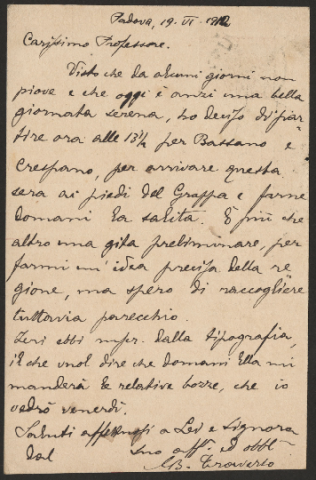 Padova, 19. VI - 1912
Carissimo Professore.
Visto che da alcuni giorni non
piove e che oggi è anzi una bella
giornata serena, ho deciso di par
tire ora alle 13½ per Bassano e
Crespano, per arrivare questa
sera ai piedi del Grappa e farne
domani la salita. È più che
altro una gita preliminare, per
farmi un' idea precisa della re
gione, ma spero di raccogliere
tuttavia parecchio.
Ieri ebbi dalla tipografia,
il che vuol dire che domani Ella mi
manderà le relative bozze, che io
vedrò venerdì.
Saluti affettuosi a Lei e Signora
dal suo aff. ed obbl.
GB. Traverso